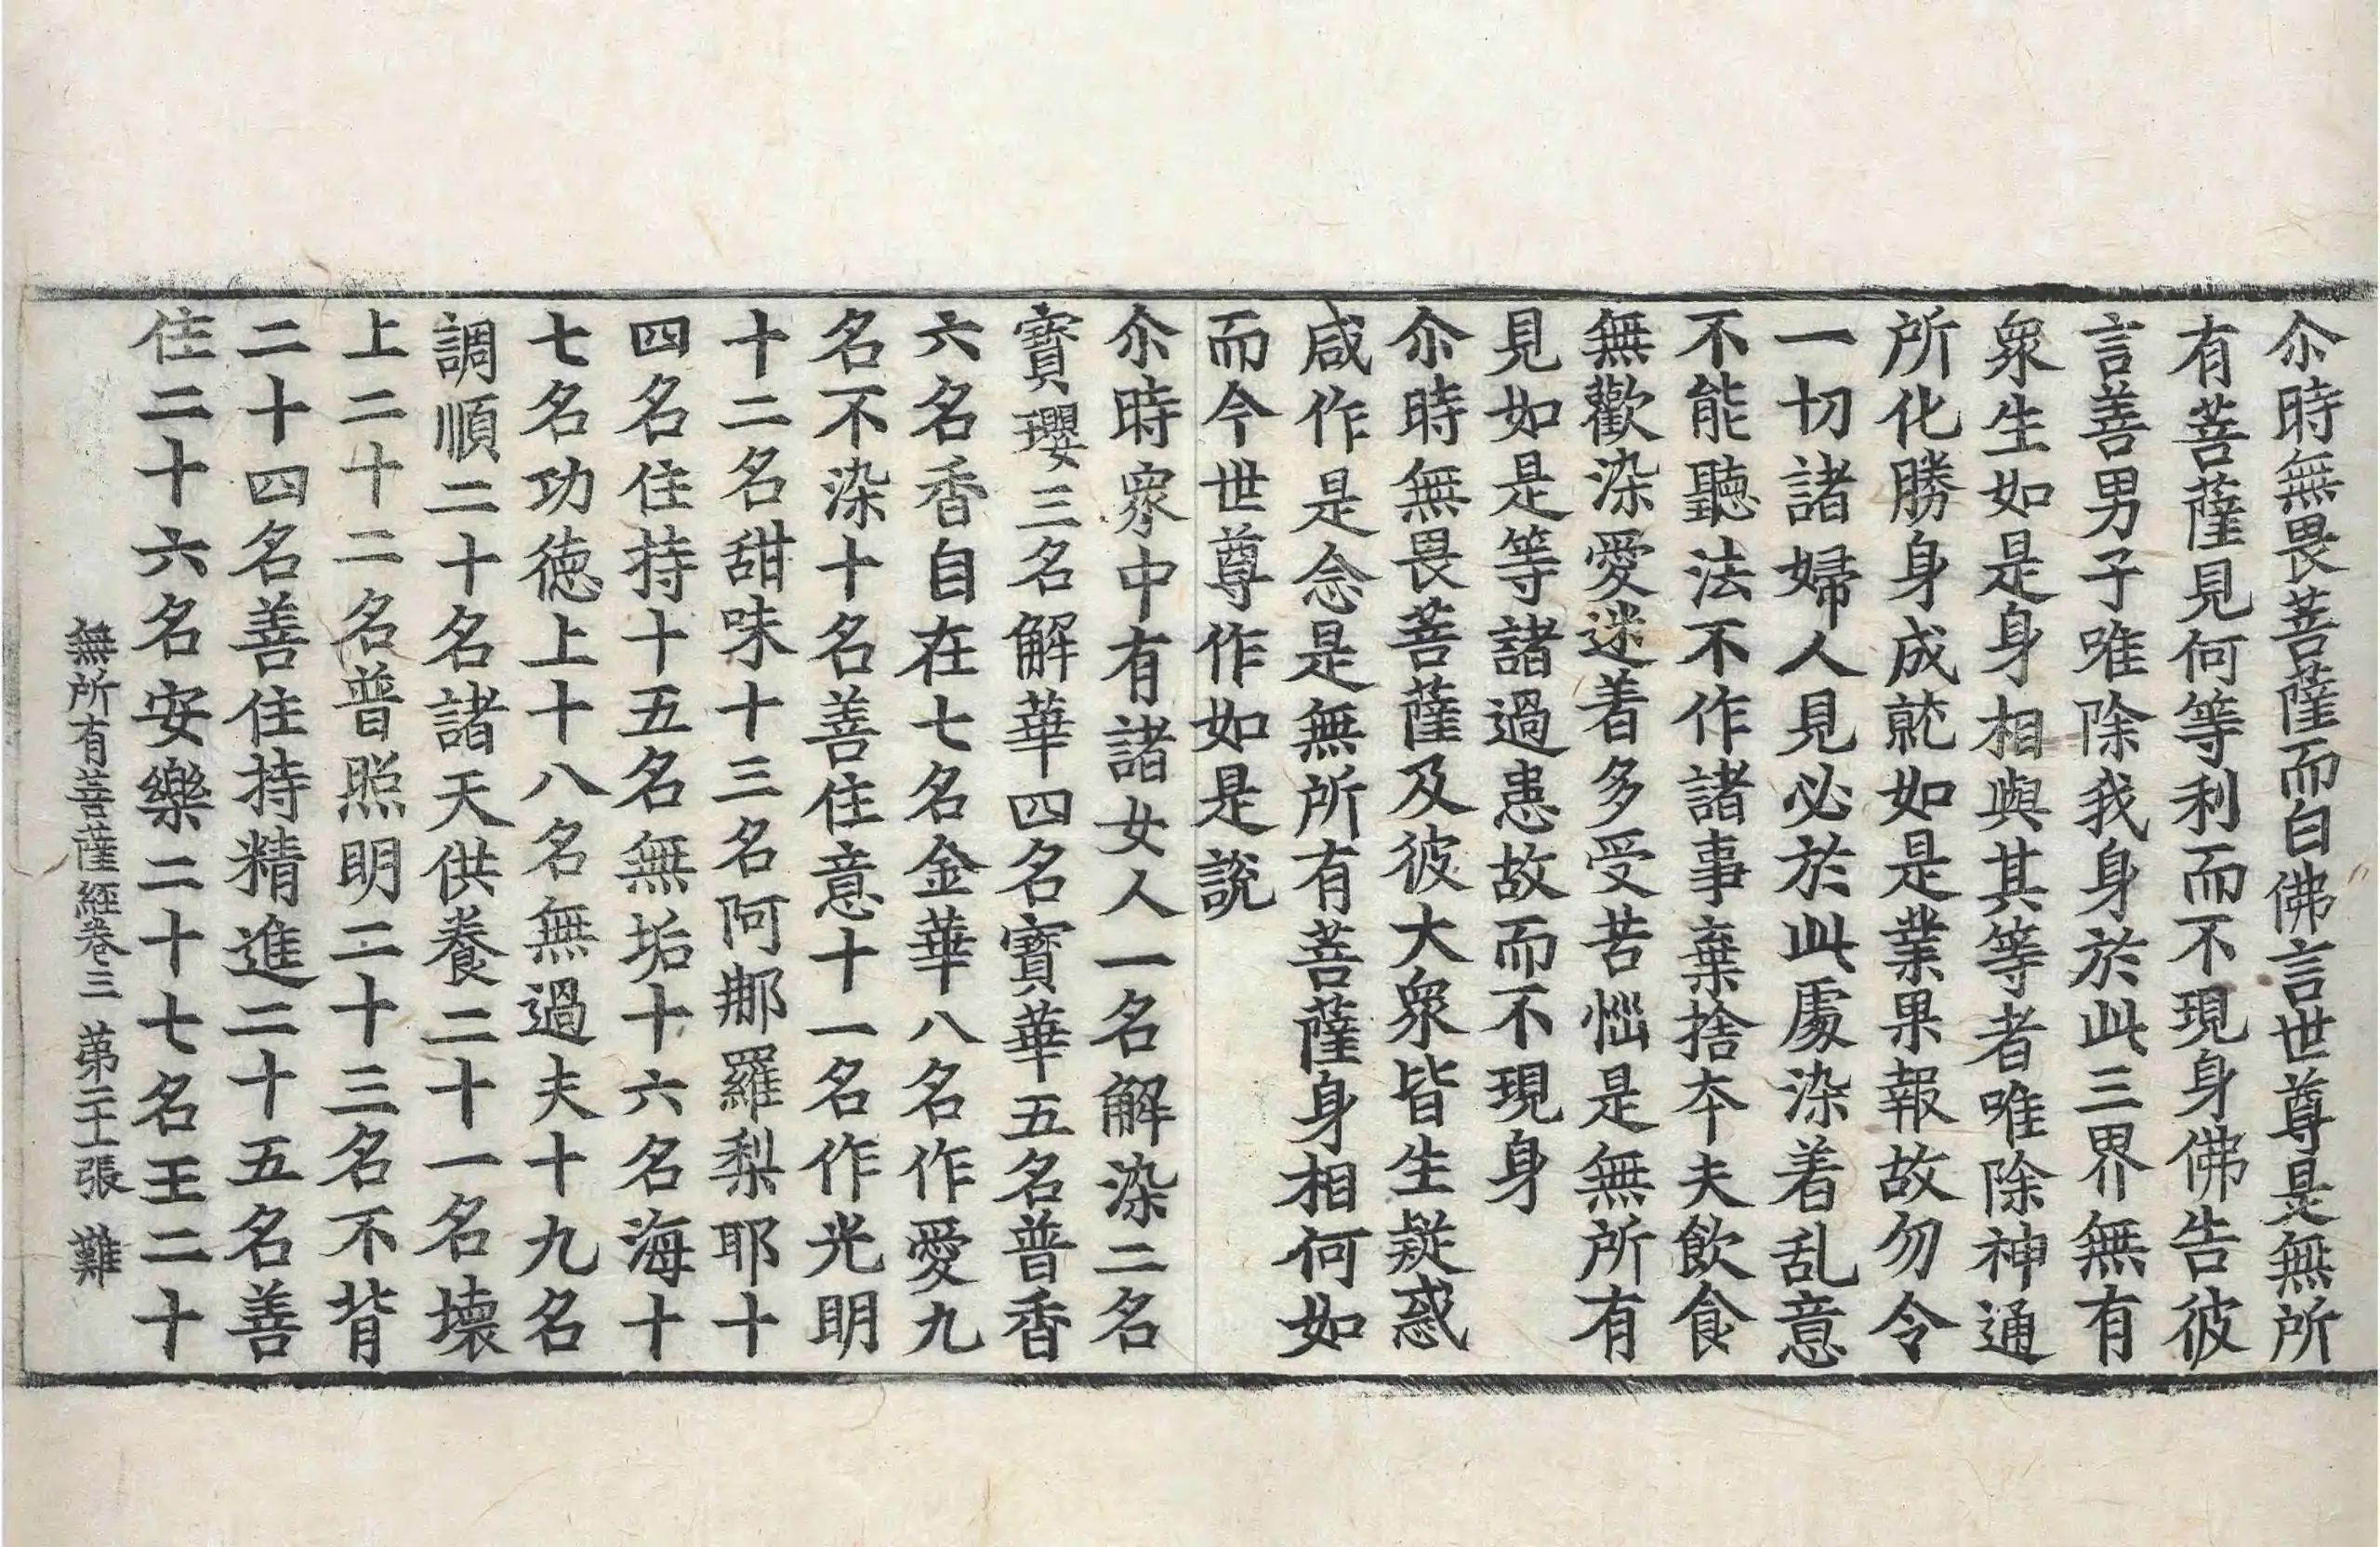 尒時無畏菩薩而白佛言世尊是無所
有菩薩見何等利而不現身佛告彼
言善男子唯除我身於此三界無有
衆生如是身相與其等者唯除神通
所化勝身成就如是業果報故勿令
一切諸婦人見必於此處染着乱意
不能聽法不作諸事棄捨夲夫飲食
無歡染愛迷着多受苦惱是無所有
見如是等諸過患故而不現身
尒時無畏菩薩及彼大衆皆生疑惑
咸作是念是無所有菩薩身相何如
而今世尊作如是說
尒時衆中有諸女人一名解染二名
寶瓔三名解華四名寶華五名普香
六名香自在七名金華八名作愛九
名不染十名善住意十一名作光明
十二名甜味十三名阿那羅梨耶十
四名住持十五名無垢十六名海十
七名功徳上十八名無過夫十九名
調順二十名諸天供養二十一名壞
上二十二名普照明二十三名不背
二十四名善住持精進二十五名善
住二十六名安樂二十七名王二十
無所有菩薩經卷三 苐二十二張 難